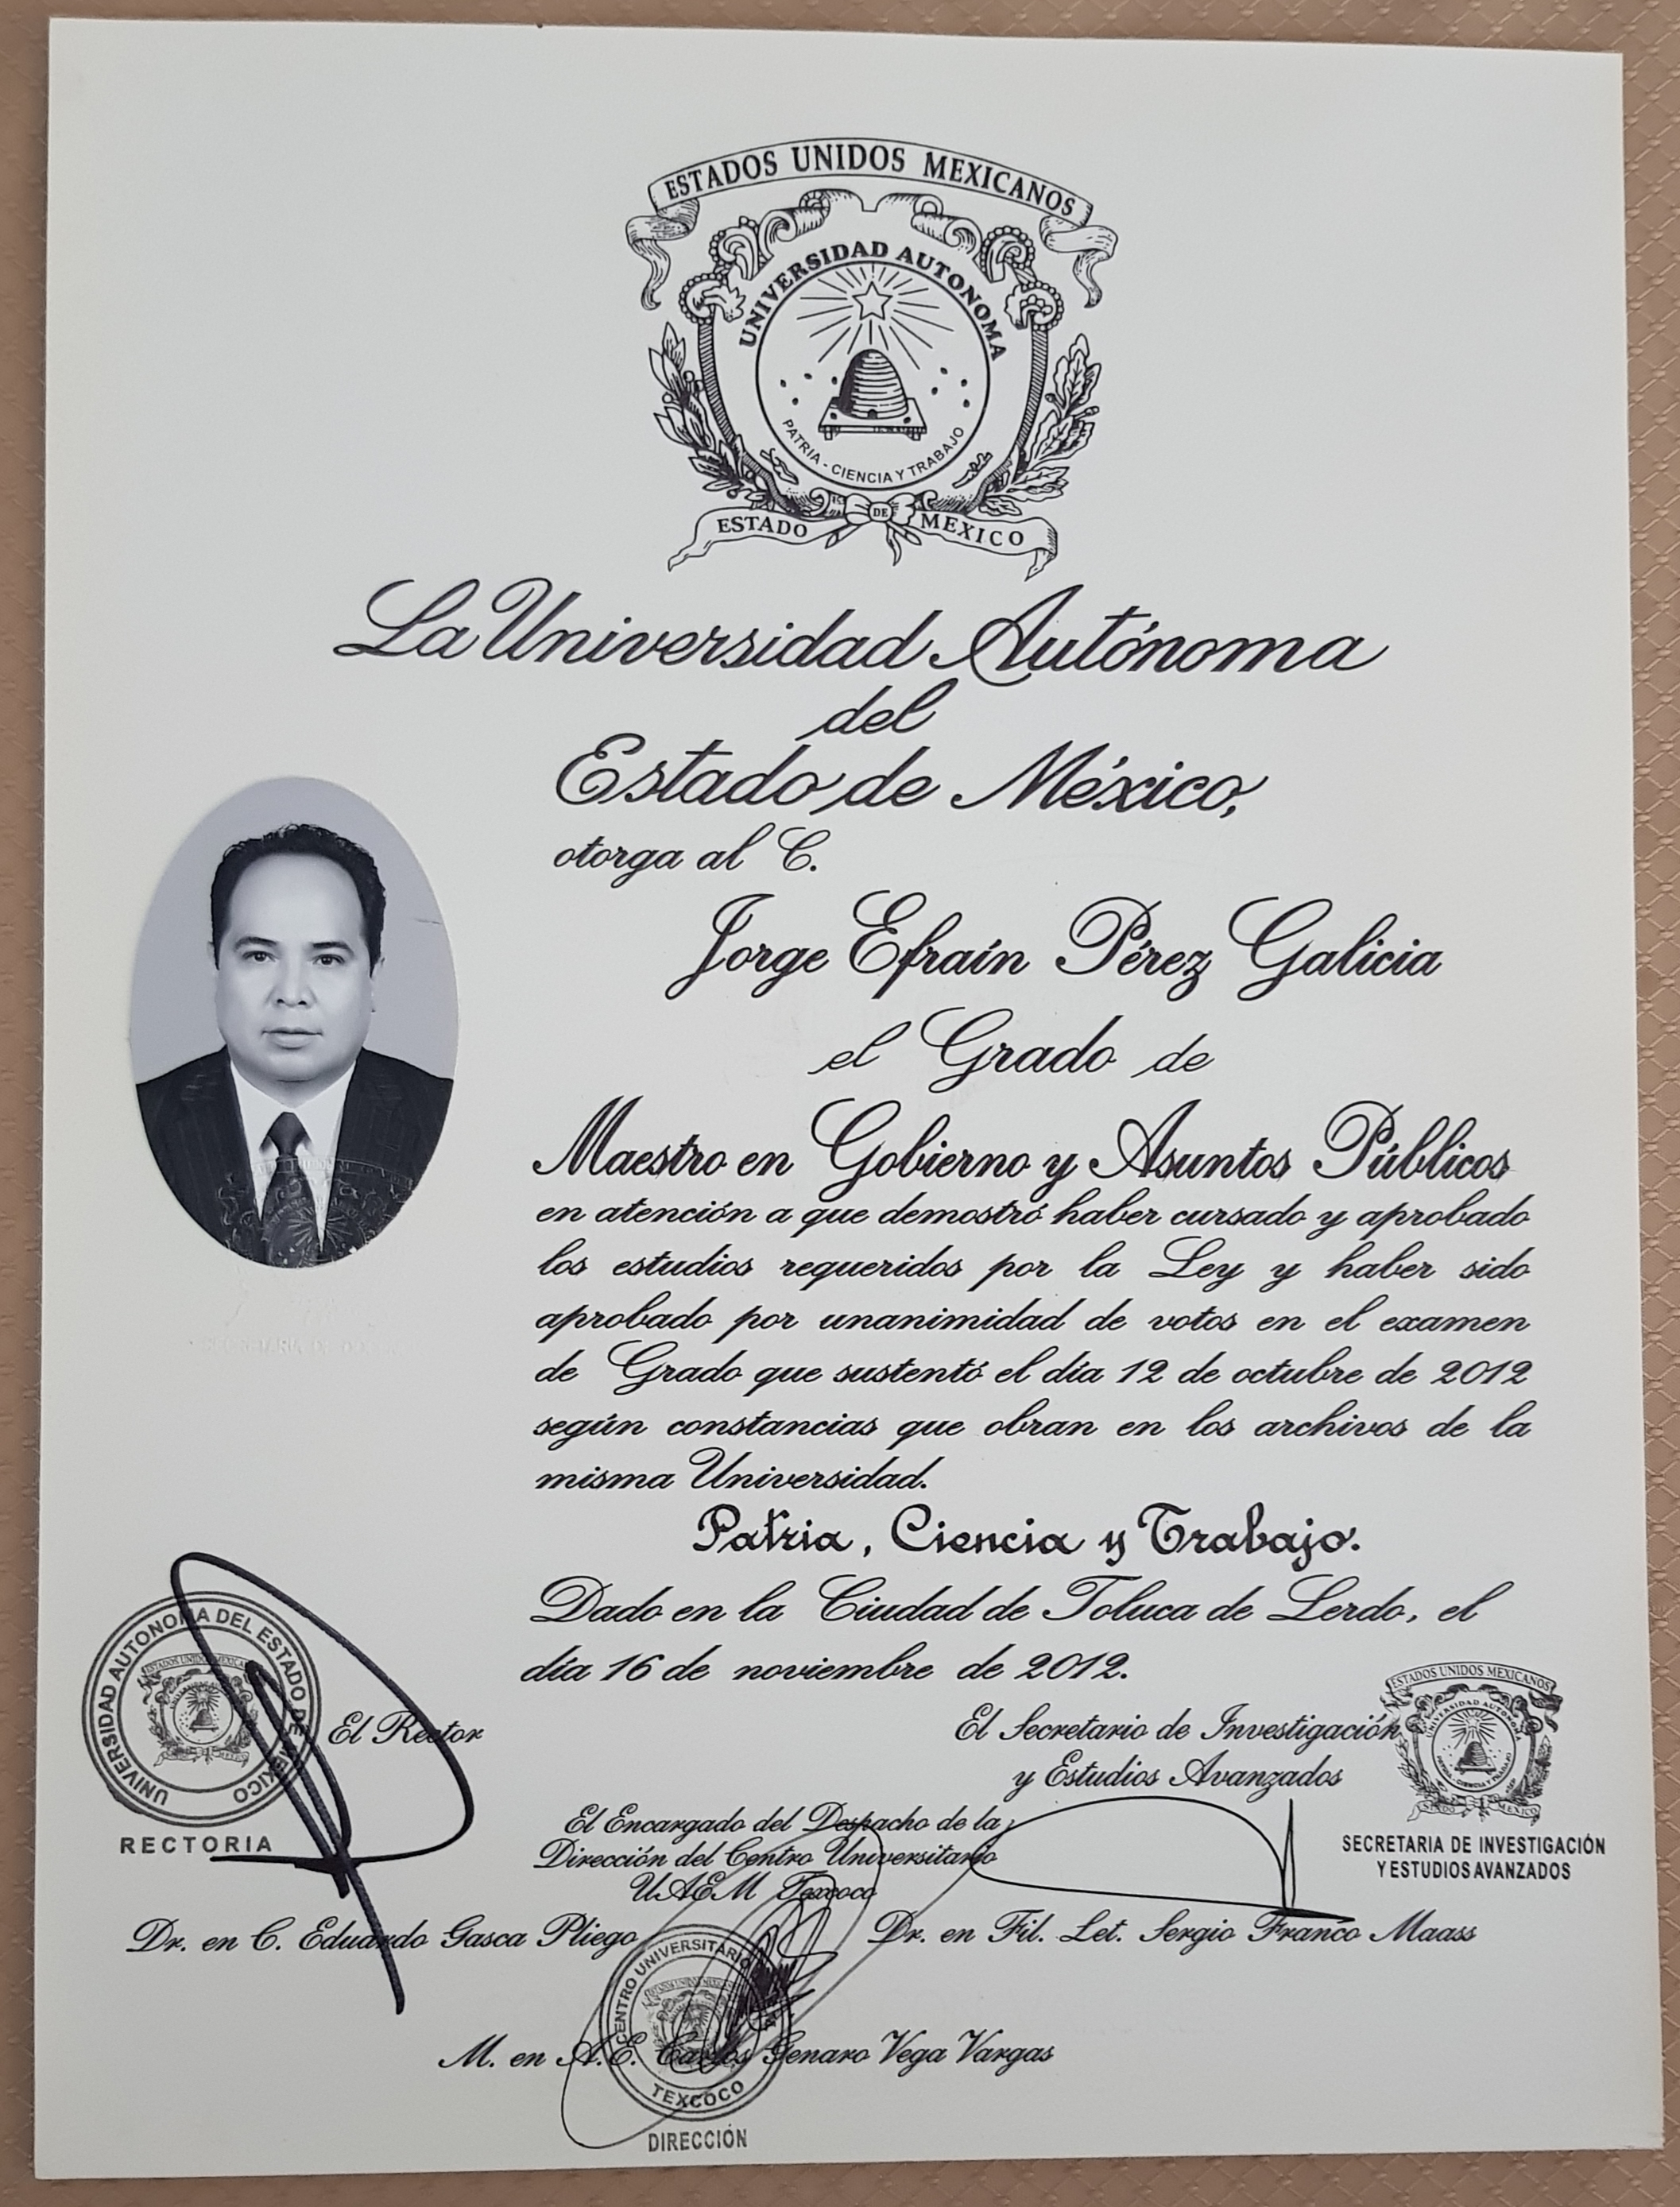 ESTADOS UNIDOS MEXICANOS
UNIVERSIDAD AUTONOMA
PATRIA - CIENCIA Y TRABAJO
ESTADO DE MEXICO
La Universidad Autónoma
del
Estado de México,
otorga al C.
Jorge Efraín Pérez Galicia
el Grado de
Maestro en Gobierno y Asuntos Públicos
en atención a que demostró haber cursado y aprobado
los estudios requeridos por la Ley y haber sido
aprobado por unanimidad de votos en el examen
de Grado que sustentó el día 12 de octubre de 2012
según constancias que obran en los archivos de la
misma Universidad.
Patria, Ciencia y Trabajo.
Dado en la Ciudad de Toluca de Lerdo, el
día 16 de noviembre de 2012.
UNIVERSIDAD AUTONOMA DEL ESTADO DE MEXICO
ESTADOS UNIDOS MEXICANOS
RECTORIA
El Rector
El Secretario de Investigación
y Estudios Avanzados
ESTADOS UNIDOS MEXICANOS
UNIVERSIDAD AUTONOMA
PATRIA - CIENCIA Y TRABAJO
ESTADO DE MEXICO
SECRETARIA DE INVESTIGACIÓN
Y ESTUDIOS AVANZADOS
El Encargado del Despacho de la
Dirección del Centro Universitario
UAEM Texcoco
Dr. en C. Eduardo Gasca Pliego
Dr. en Fil. Let. Sergio Franco Maass
CENTRO UNIVERSITARIO
TEXCOCO
M. en A.E. Carlos Genaro Vega Vargas
DIRECCIÓN